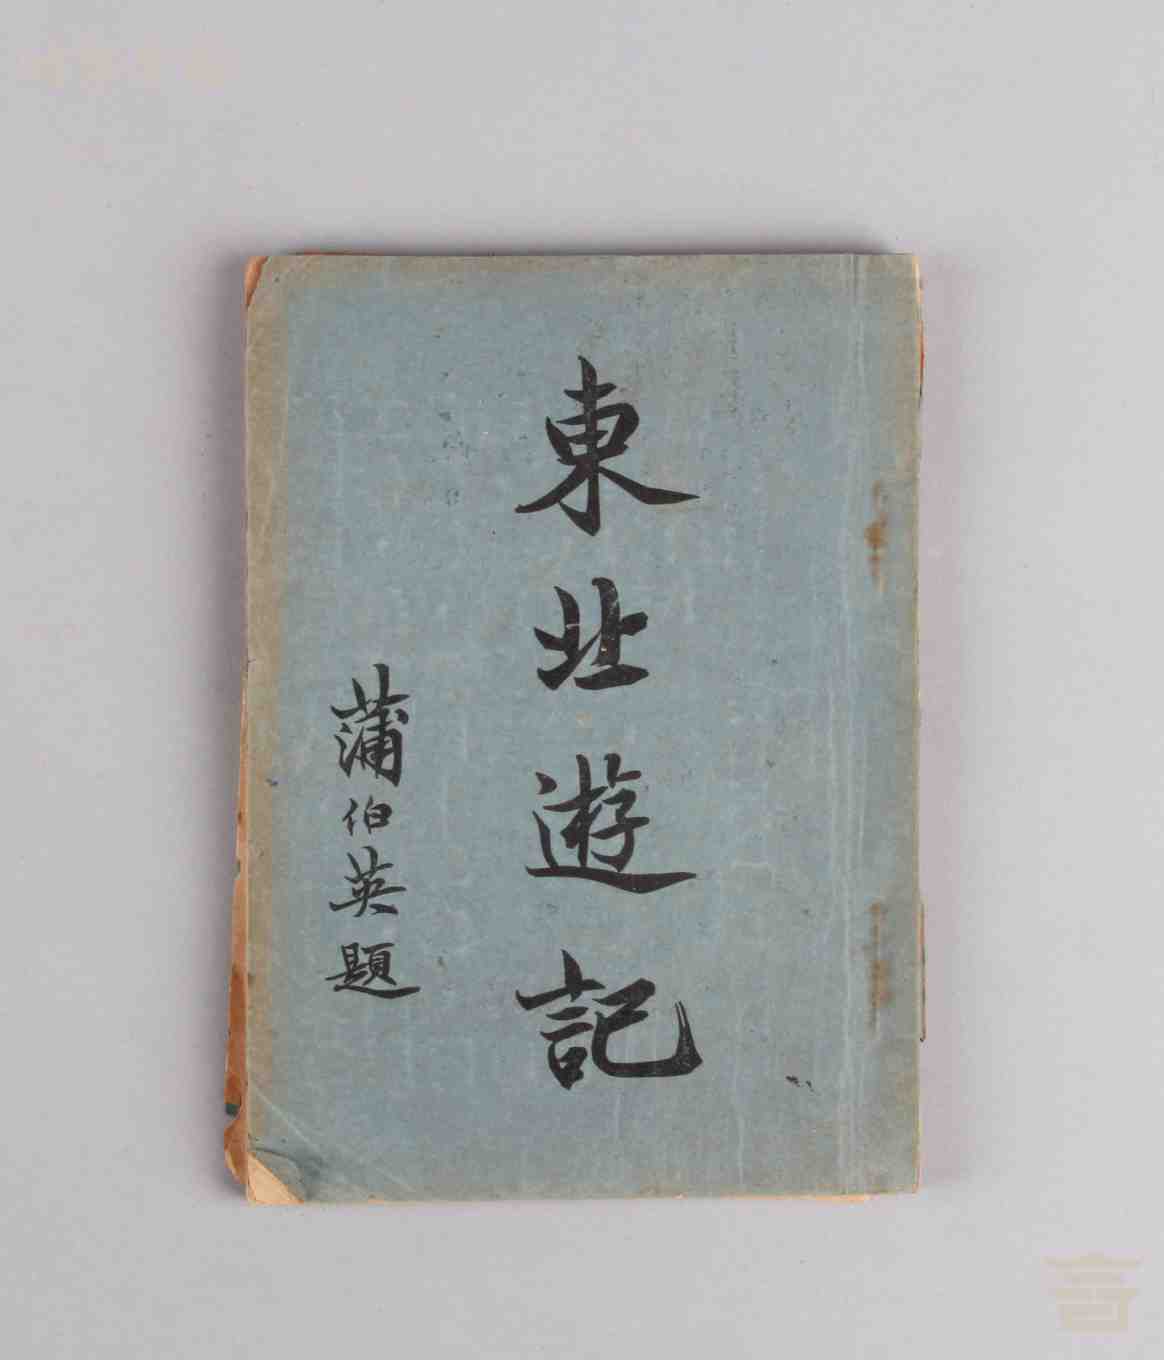 東北遊記
蒲伯英題